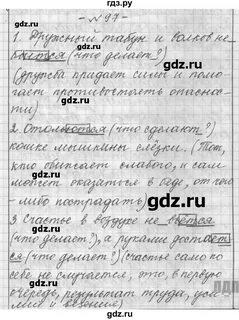 гдз.ру
- № 97 -
1. Дружный табун и волков не
боится (что делает?)
(дружба придаёт силы и помо-
гает противостоять опаснос-
ти)
2. Отольются (что сделают?)
кошке мышкины слёзки. (Тот,
кто обижает слабого, и сам
может оказаться в беде, от чего
-либо пострадать)
3. Счастье в воздухе не вьётся
(что делает?), а руками достаёт-
ся (что делает?) (счастье само по
себе не случается, это, в первую
очередь, результат труда, уси
лие и везения)